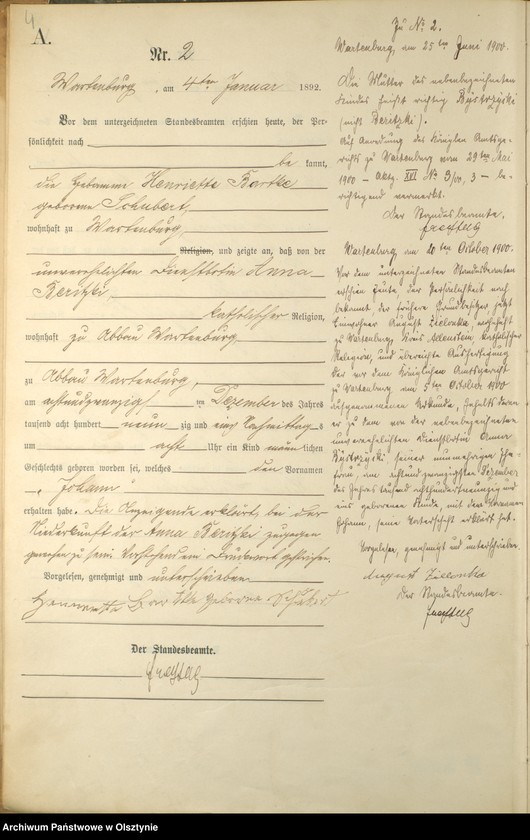 4
A.
Nr. 2
Wartenburg, am 4ten Januar 1892.
Vor dem unterzeichneten Standesbeamten erschien heute, der Per-
sönlichkeit nach
be kannt,
die Hebamme Henriette Bartke
geborene Schubert,
wohnhaft zu Wartenburg,
Religion, und zeigte an, daß von der
unverehelichten Dienstbotin Anna
Beritzki,
katholischer Religion,
wohnhaft zu Abbau Wartenburg
zu Abbau Wartenburg,
am achtundzwanzigsten Dezember des Jahres
tausend acht hundert neun zig und eins Vormittags
um acht Uhr ein Kind männlichen
Geschlechts geboren worden sei, welches den Vornamen
"Johann"
erhalten habe. Die Anzeigende erklärt, bei der
Niederkunft der Anna Beritzki zugegen
gewesen zu sein. Vorstehendem Druckwort gestrichen.
Vorgelesen, genehmigt und unterschrieben
Henriette Bartke geborene Schubert
Der Standesbeamte.
Freytag
Zu No 2.
Wartenburg, am 25ten Juni 1900.
Die Mutter des nebenbezeichneten
Kindes heißt richtig Bystrzycki
(nicht Beritzki).
Auf Anordnung des Königlichen Amtsge-
richts zu Wartenburg vom 29ten Mai
1900 — XVI No 3/00, 3 — be-
richtigend vermerkt.
Der Standesbeamte.
Freytag
Wartenburg, am 10ten October 1900.
Vor dem unterzeichneten Standesbeamten
erschien heute, der Persönlichkeit nach
bekannt, der frühere Grundbesitzer, jetzt
Einwohner August Zielonka, wohnhaft
zu Wartenburg, Kreis Allenstein, katholischer
Religion, und überreichte Ausfertigung
der vor dem Königlichen Amtsgericht
zu Wartenburg am 5ten October 1900
aufgenommenen Urkunde, Inhalts deren
er zu dem von der nebenbezeichneten
unverehelichten Dienstbotin Anna
Bystrzycki, seiner nunmehrigen Ehe-
frau, am achtundzwanzigsten Dezember
des Jahres tausend achthundertneunzig und
eins geborenen Kinde, mit dem Vornamen
Johann, seine Vaterschaft erklärt hat.
Vorgelesen, genehmigt und unterschrieben.
August Zielonka
Der Standesbeamte.
Freytag
Archiwum Państwowe w Olsztynie